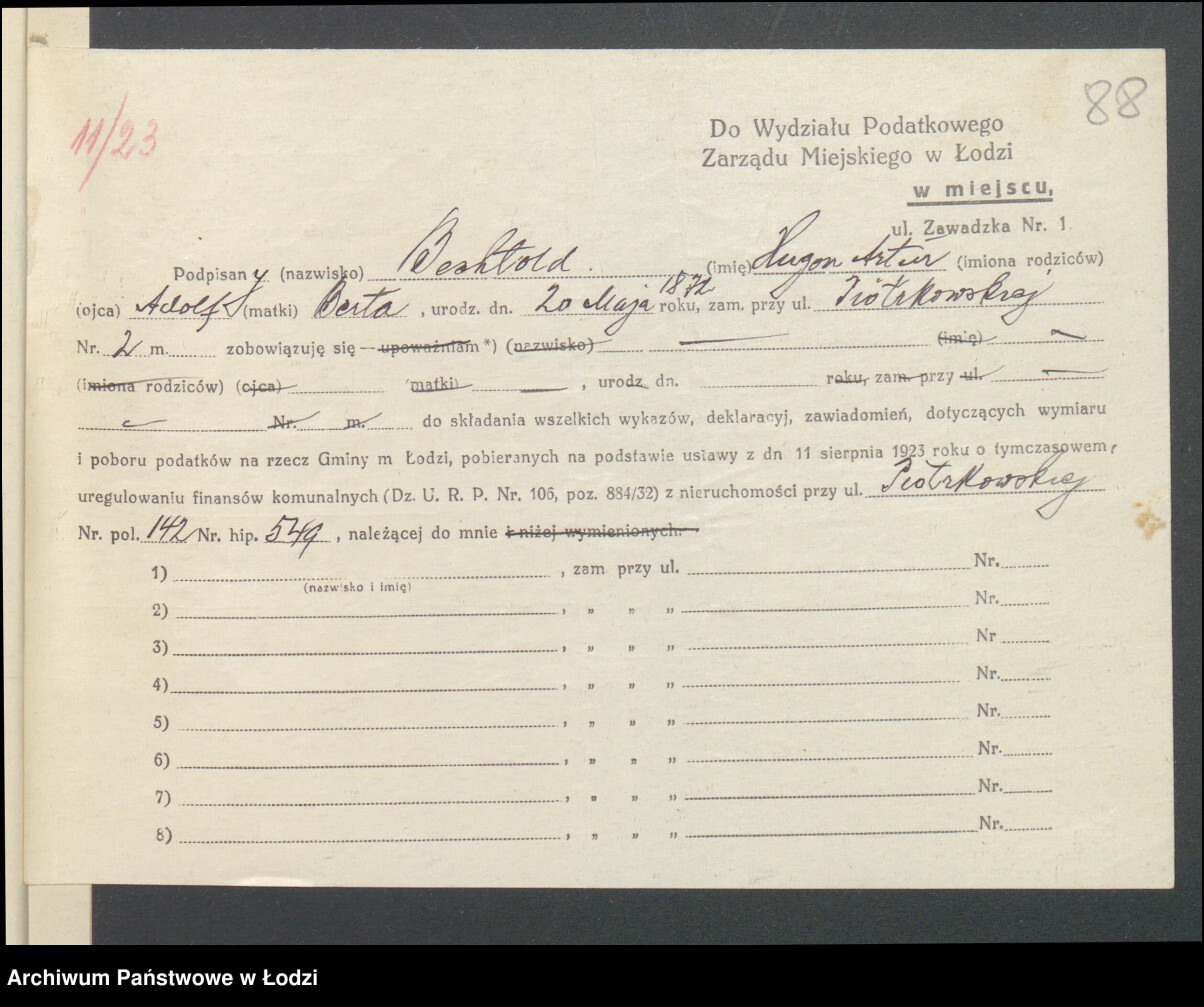 88
11/23
Do Wydziału Podatkowego
Zarządu Miejskiego w Łodzi
w miejscu,
ul. Zawadzka Nr. 1
Podpisany (nazwisko) Beshtold. (imię) Hugon Artur (imiona rodziców)
(ojca) Adolf (matki) Berta , urodz. dn. 20 Maja 1872 roku, zam. przy ul. Piotrkowskiej
Nr. 2 m. zobowiązuję się — upoważniam *) (nazwisko) (imię)
(imiona rodziców) (ojca) (matki) , urodz. dn. roku, zam. przy ul.
Nr. m. do składania wszelkich wykazów, deklaracyj, zawiadomień, dotyczących wymiaru
i poboru podatków na rzecz Gminy m Łodzi, pobieranych na podstawie ustawy z dn 11 sierpnia 1923 roku o tymczasowem
uregulowaniu finansów komunalnych (Dz. U. R. P. Nr. 106, poz. 884/32) z nieruchomości przy ul. Piotrkowskiej
Nr. pol. 142 Nr. hip. 549 , należącej do mnie i niżej wymienionych.
1) , zam przy ul. Nr.
(nazwisko i imię)
2) , „ „ „ Nr.
3) , „ „ „ Nr
4) , „ „ „ Nr.
5) , „ „ „ Nr.
6) , „ „ „ Nr.
7) , „ „ „ Nr.
8) , „ „ „ Nr.
Archiwum Państwowe w Łodzi